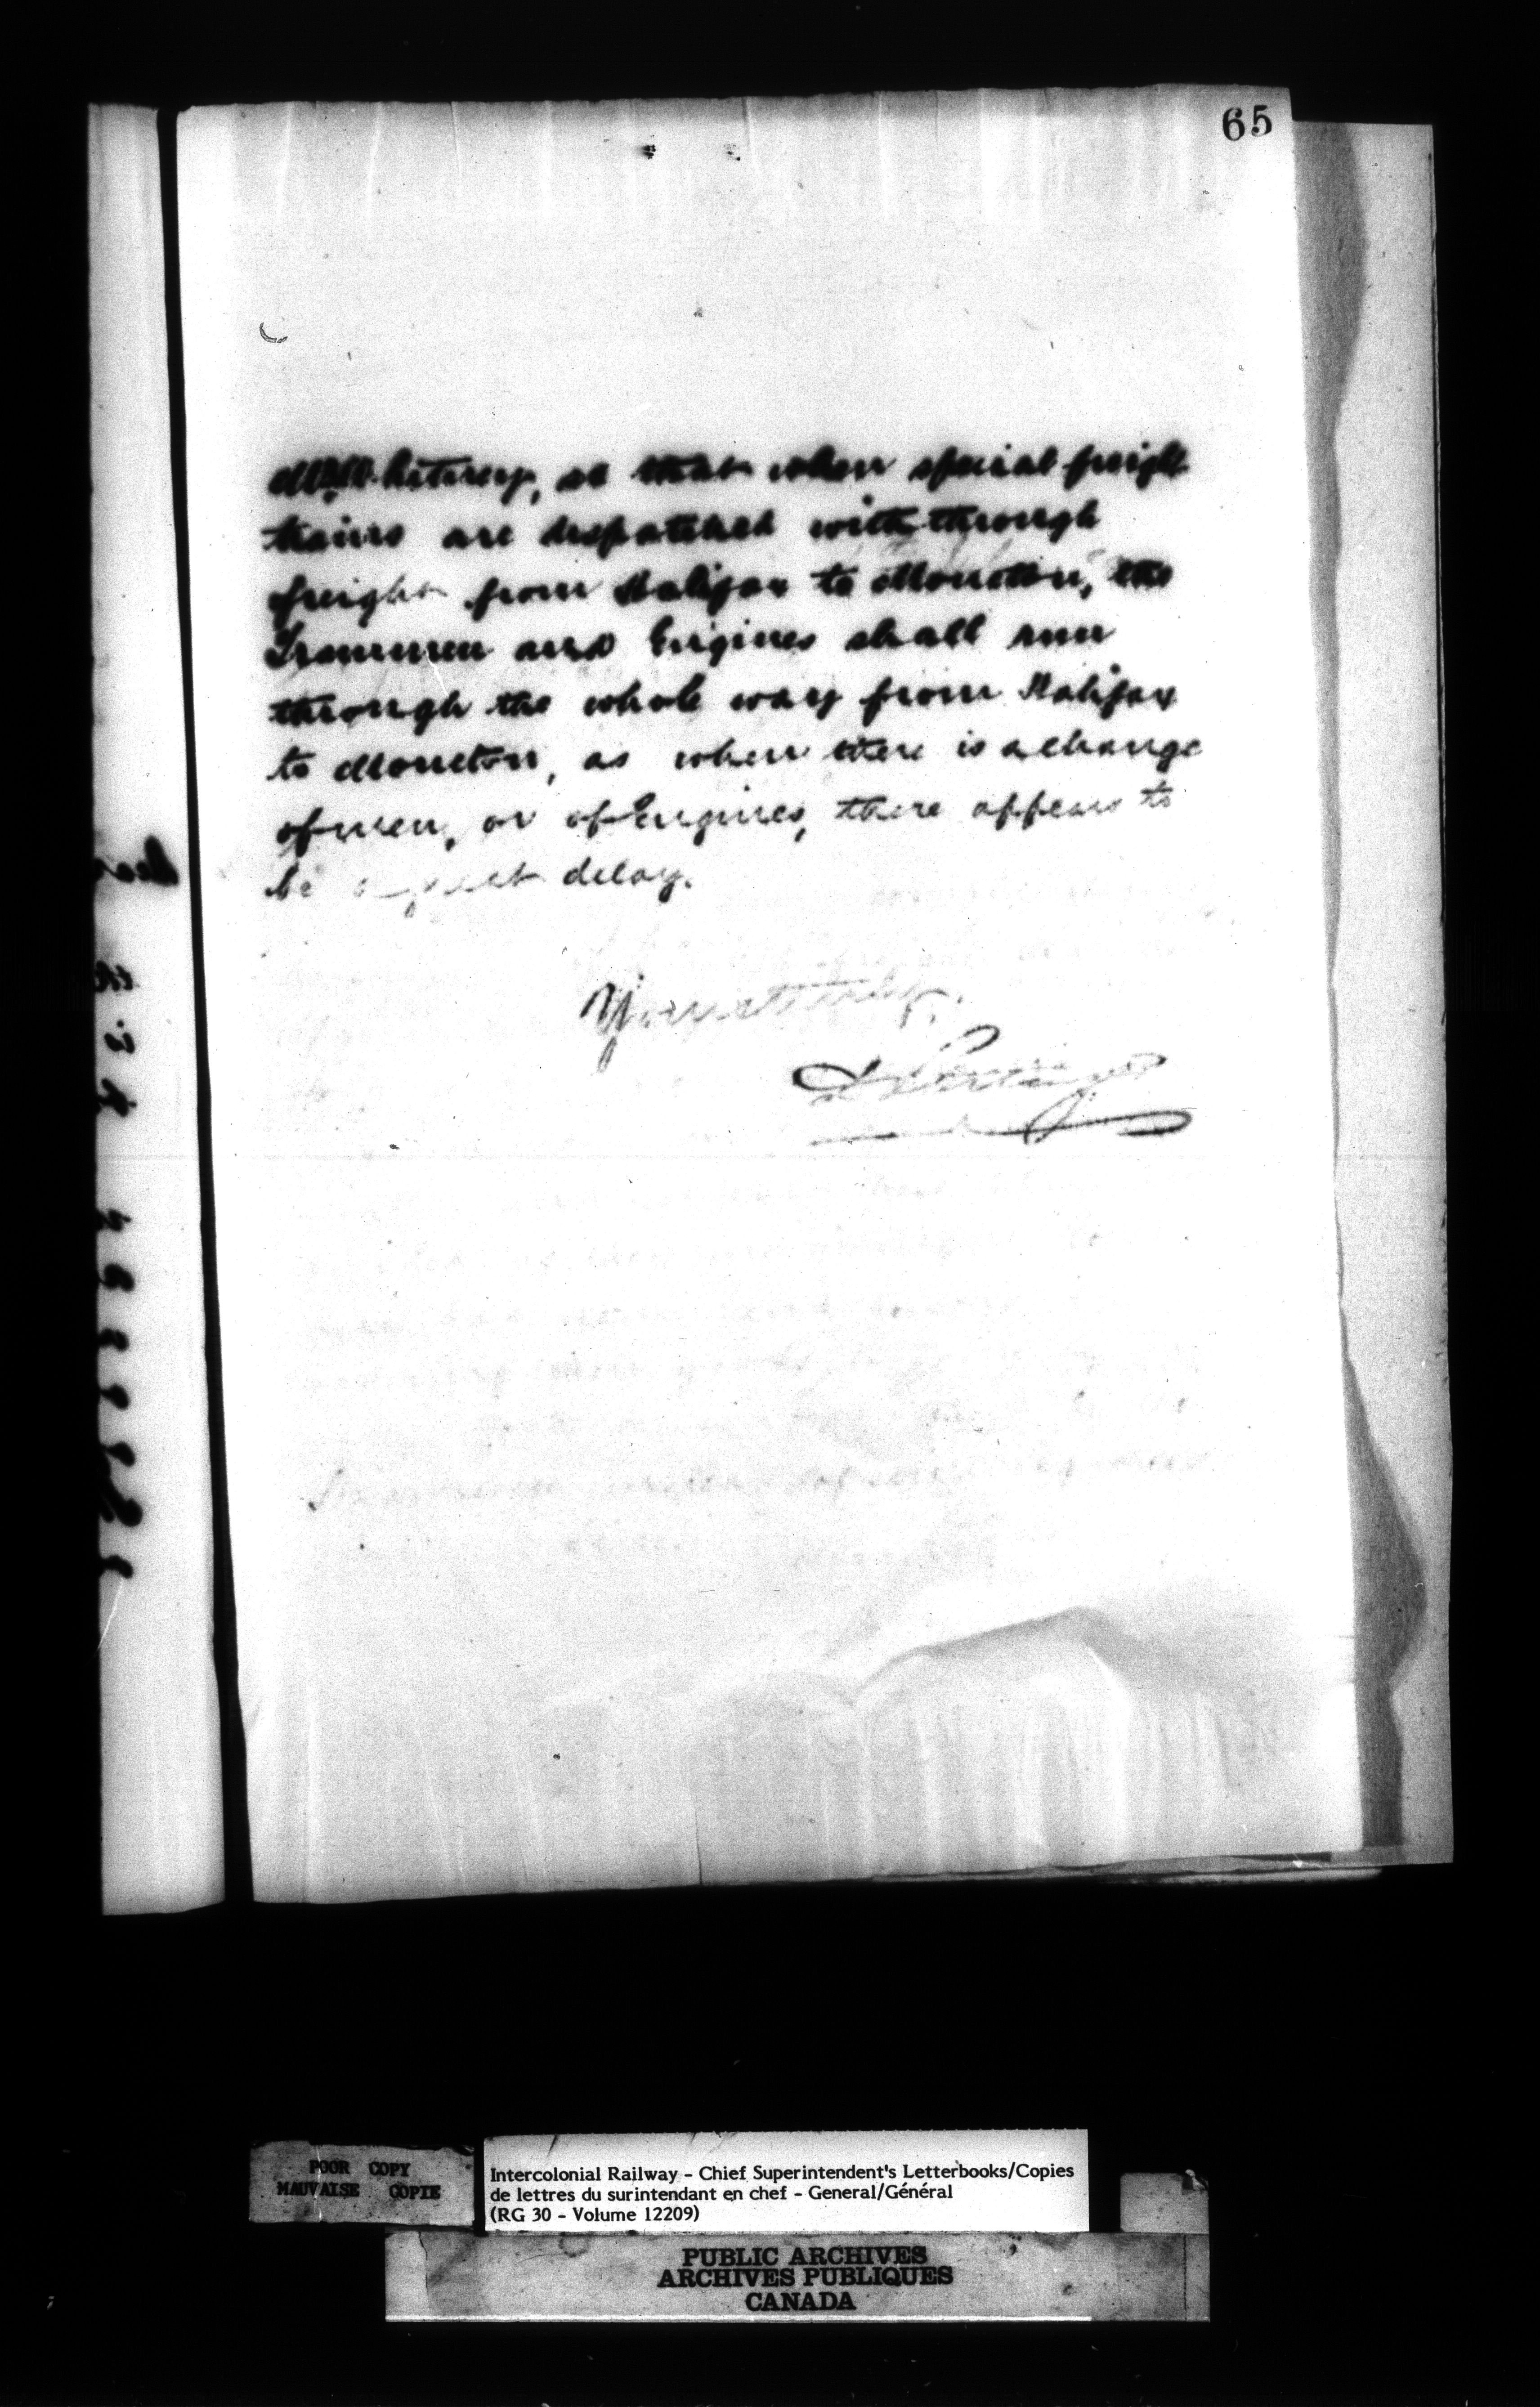 65
Mr Whitney, so that when special freight
trains are despatched with through
freight from Halifax to Moncton, the
Trainmen and Engines shall run
through the whole way from Halifax
to Moncton, as when there is a change
of men, or of Engines, there appears to
be a great delay.
Yours truly,
D Pottinger
POOR COPY
MAUVAISE COPIE
Intercolonial Railway - Chief Superintendent's Letterbooks/Copies
de lettres du surintendant en chef - General/Général
(RG 30 - Volume 12209)
PUBLIC ARCHIVES
ARCHIVES PUBLIQUES
CANADA